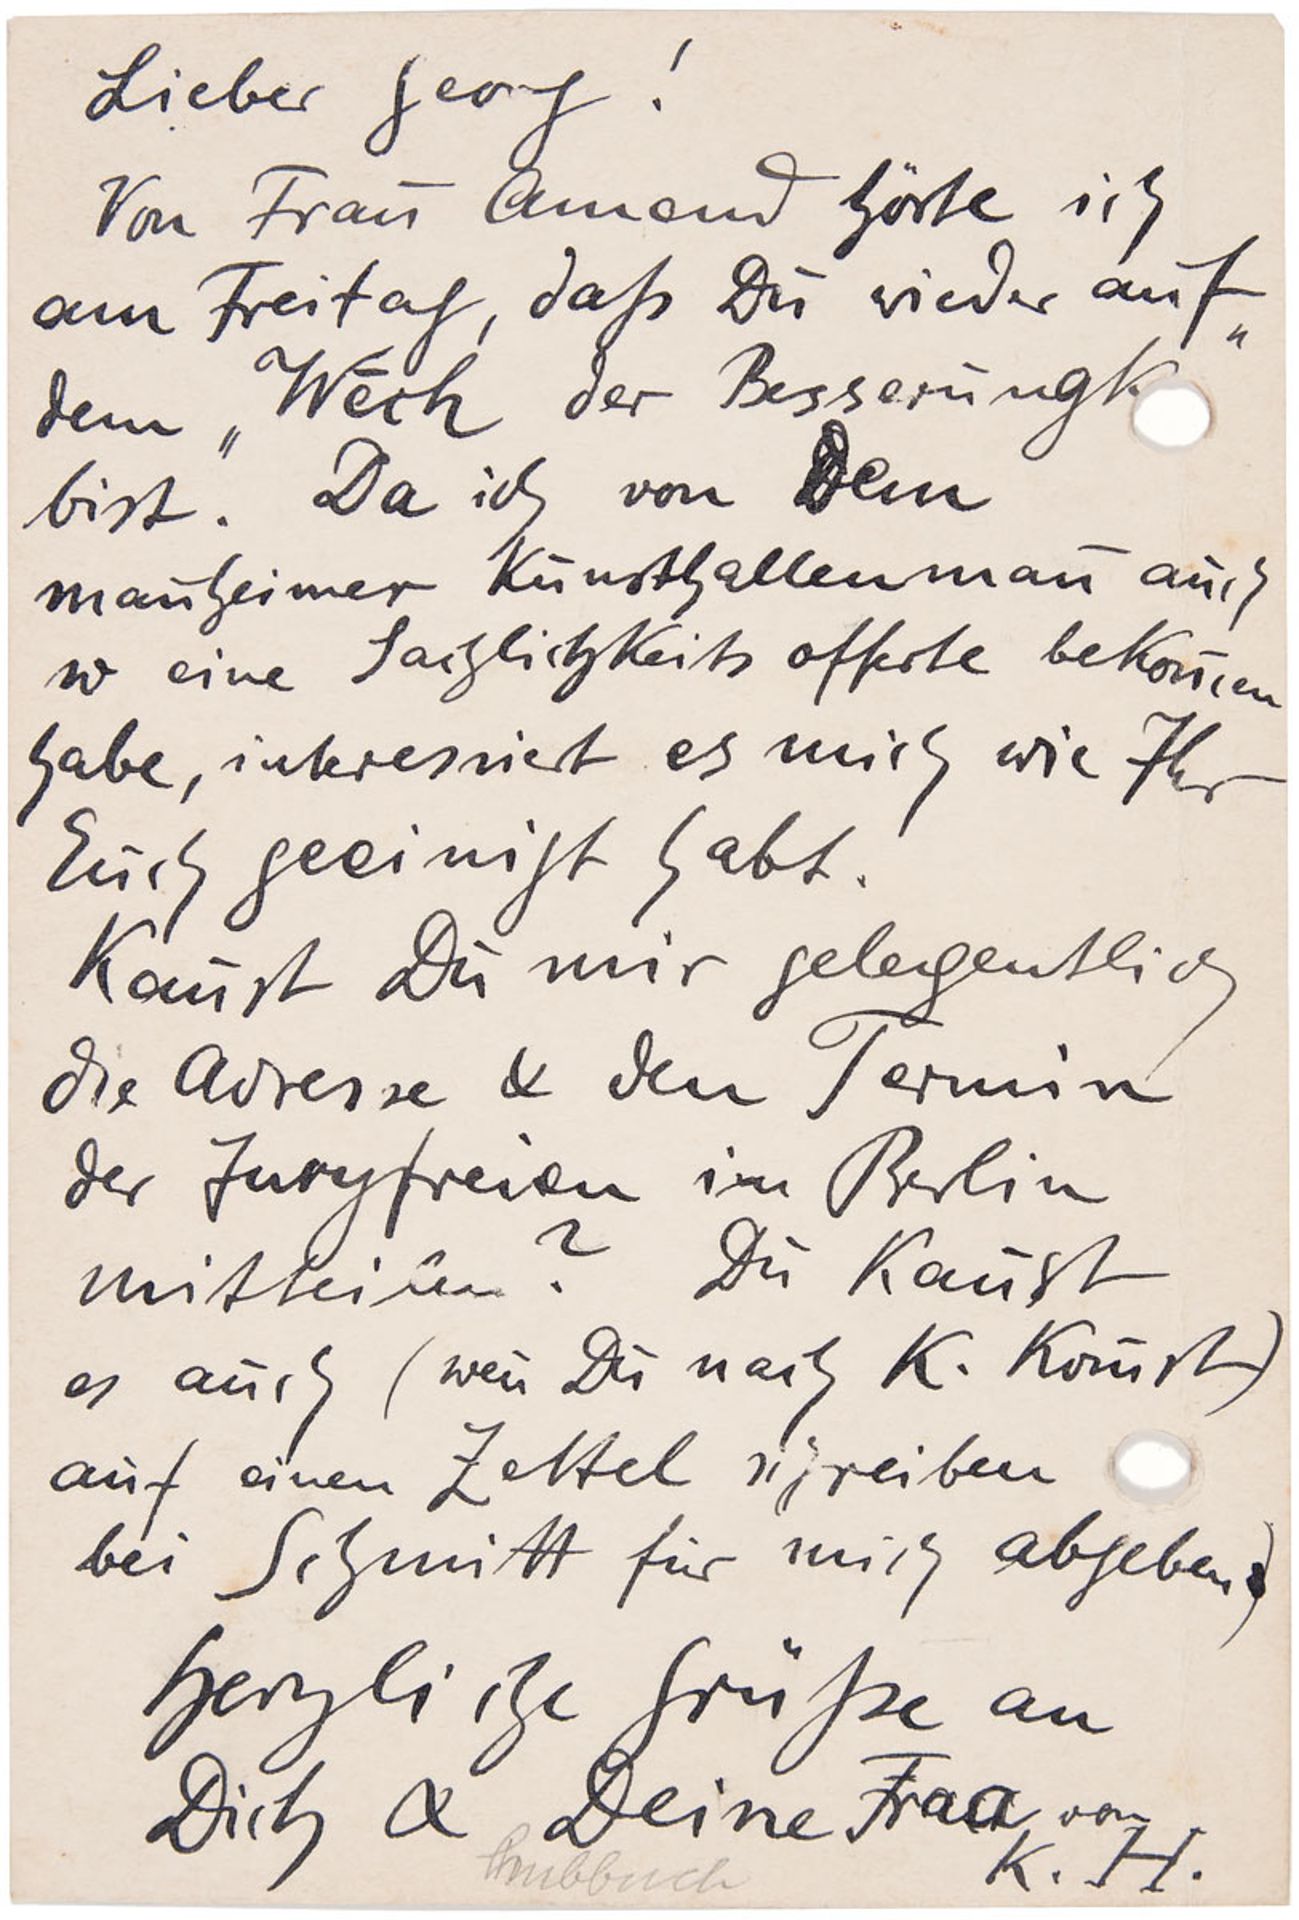 Lieber Georg!
Von Frau Amend hörte ich
am Freitag, daß Du wieder auf
dem „Wech der Besserungk“
bist. Da ich von Dem
man̄heimer Kunsthallenman̄ auch
so eine Sachlichkeits offerte bekom̄en
habe, interessiert es mich wie Ihr
Euch geeinigt habt.
Kan̄st Du mir gelegentlich
die Adresse & den Termin
der Juryfreien in Berlin
mitteilen? Du Kan̄st
es auch (wen̄ Du nach K. Kom̄st)
auf einen Zettel schreiben
bei Schmitt für mich abgeben)
Herzliche Grüße an
Dich & Deine Frau von
K. H.
Hubbuch